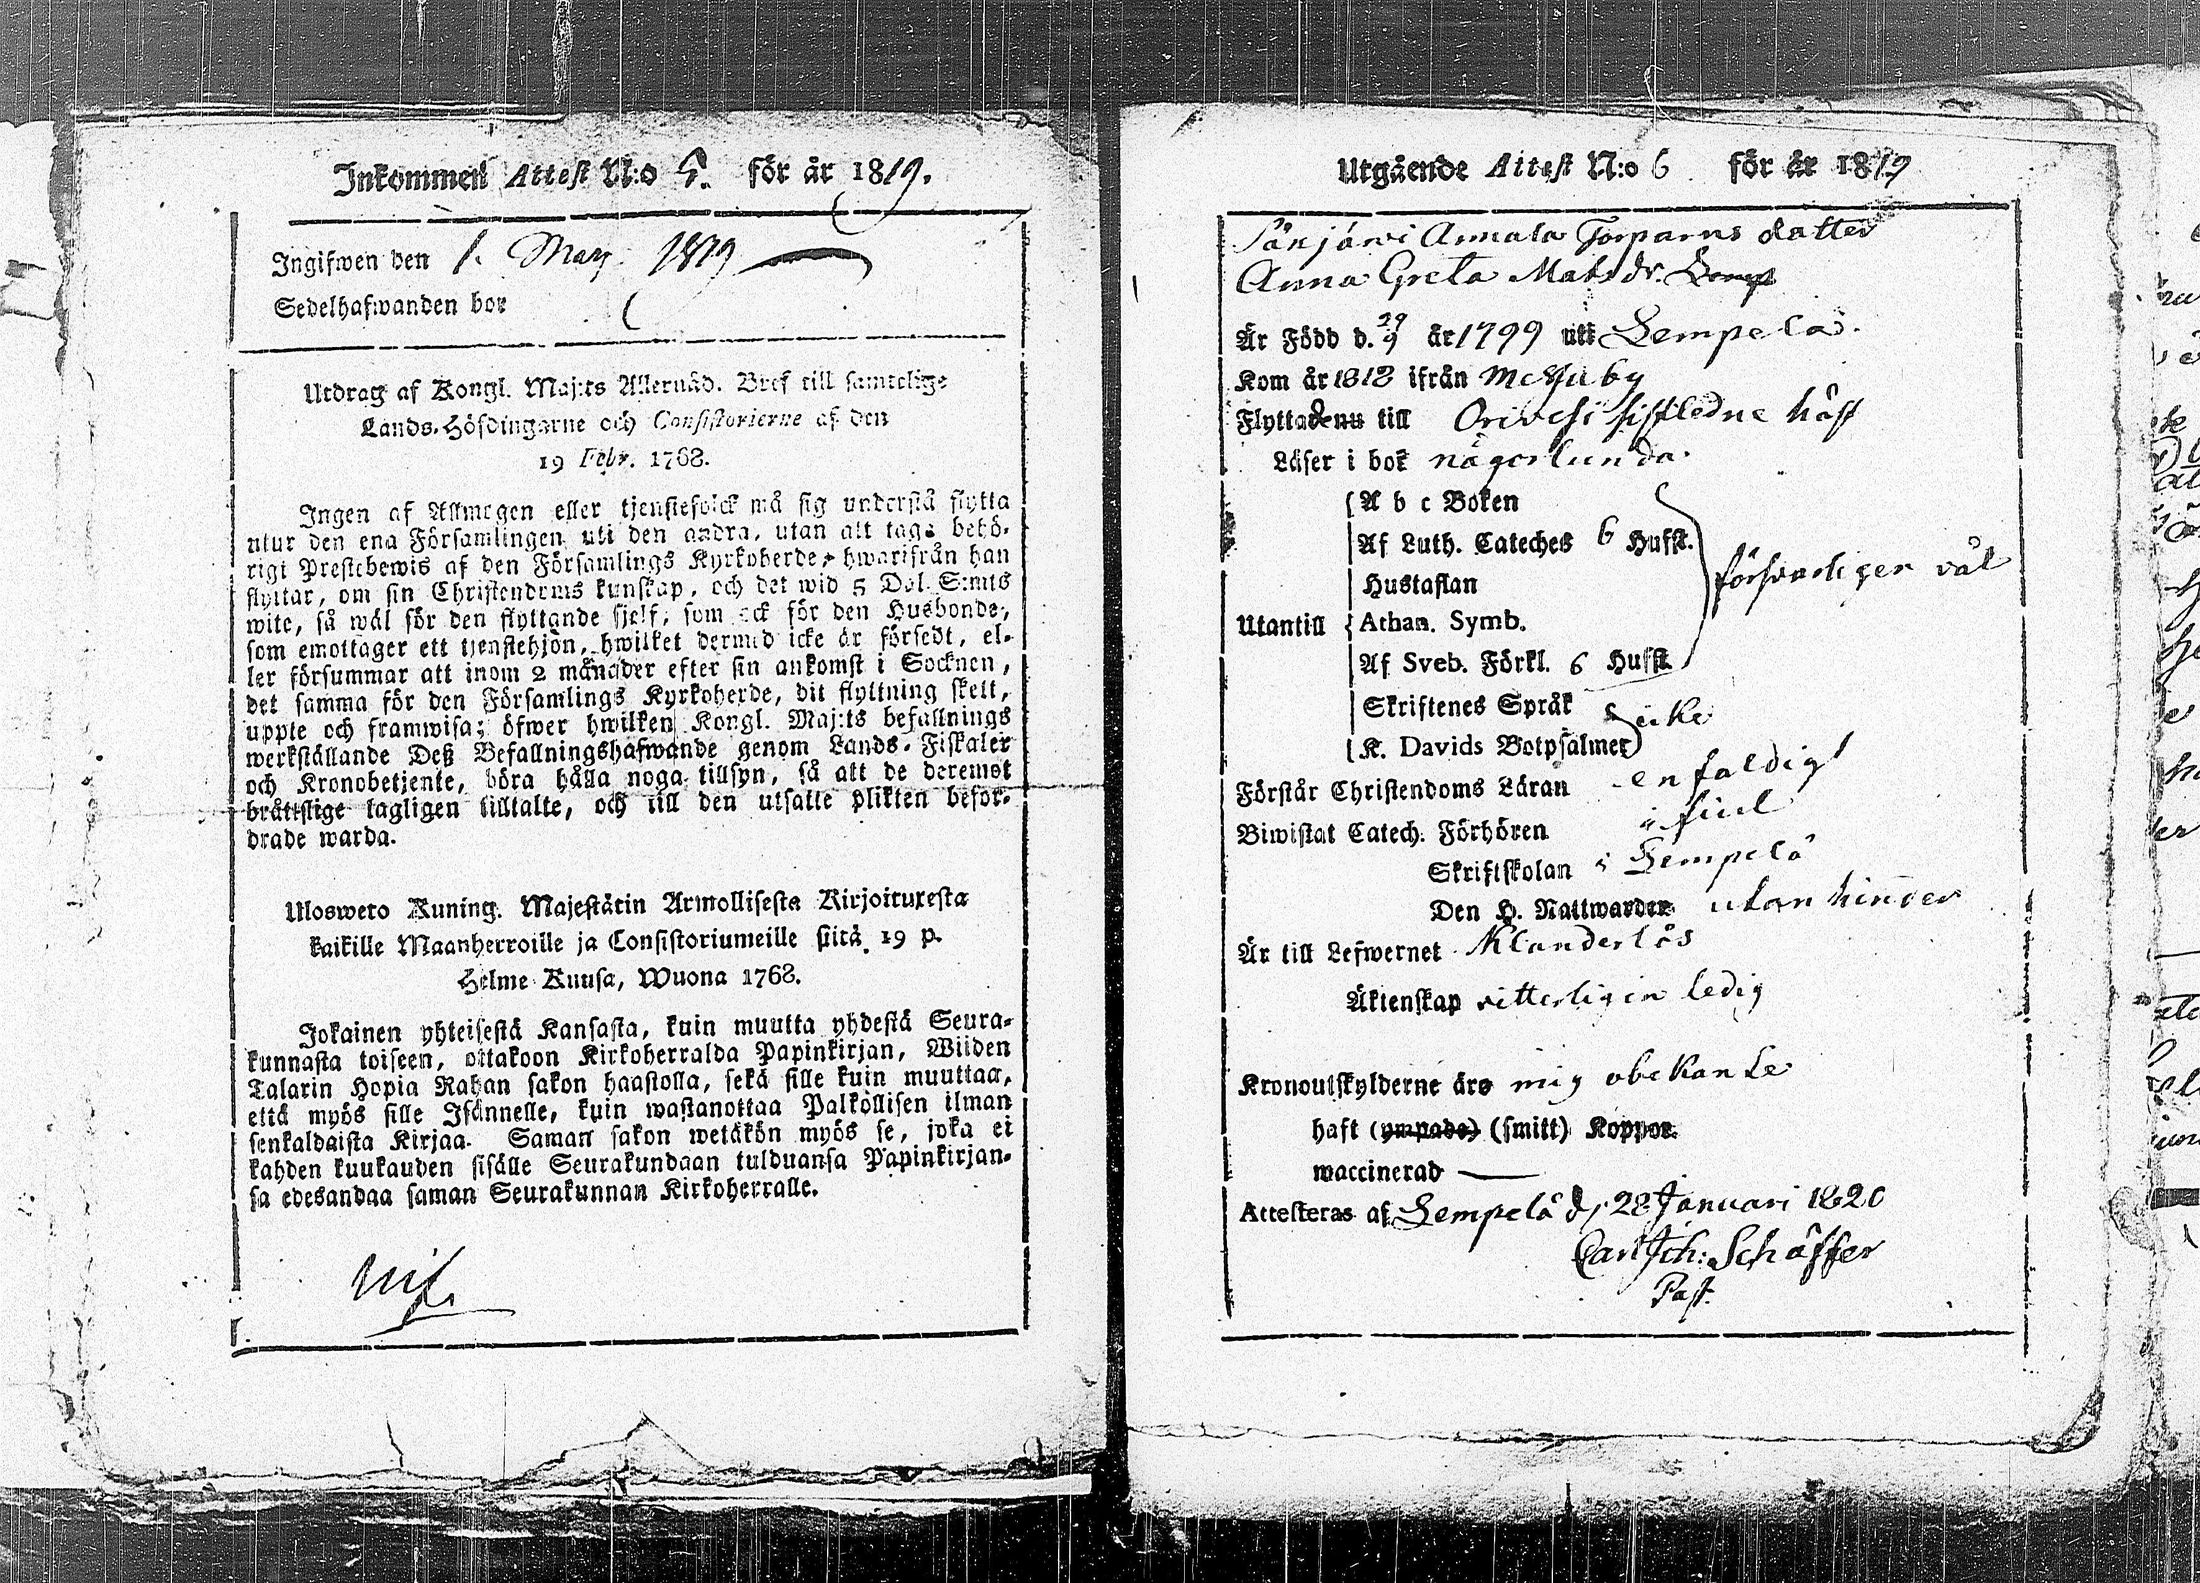 Inkommen Attest N:o 5. för år 1819.
Ingifwen den 1. Marz 1819
Sedelhafwanden bor
Utdrag af Kongl. Maj:ts Allernåd. Bref till samtelige
Lands-Höfdingarne och Consistorierne af den
19 Febr. 1768.
Ingen af Allmogen eller tjenstefolck må sig understå flytta
utur den ena Församlingen uti den andra, utan att taga behö-
rigt Prestebewis af den Församlings Kyrkoherde, hwarifrån han
flyttar, om sin Christendoms kunskap, och det wid 5 Dal. S:mts
wite, så wäl för den flyttande sjelf, som ock för den Husbonde,
som emottager ett tjenstehjon, hwilket dermed icke är försedt, el-
ler försummar att inom 2 månader efter sin ankomst i Socknen,
det samma för den Församlings Kyrkoherde, dit flyttning skett,
uppte och framwisa; öfwer hwilken Kongl. Maj:ts befallnings
werkställande Deß Befallningshafwande genom Lands-Fiskaler
och Kronobetjente, böra hålla noga tillsyn, så att de deremot
bråttslige lagligen tilltalte, och till den utsatte plikten befor-
drade warda.
Ulosweto Kuning. Majestätin Armollisesta Kirjoituxesta
kaikille Maanherroille ja Consistoriumeille siitä 19 p.
Helme Kuusa, Wuona 1768.
Jokainen yhteisestä Kansasta, kuin muutta yhdestä Seura-
kunnasta toiseen, ottakoon Kirkoherralda Papinkirjan, Wiiden
Talarin Hopia Rahan sakon haastolla, sekä sille kuin muuttaa,
että myös sille Isännelle, kuin wastanottaa Palkollisen ilman
senkaldaista Kirjaa. Saman sakon wetäkön myös se, joka ei
kahden kuukauden sisälle Seurakundaan tulduansa Papinkirjan-
sa edesandaa saman Seurakunnan Kirkoherralle.
Utgående Attest N:o 6 för år 1819
Sänjärwi Annala Torparns datter
Anna Greta Matsdr.
Är Född d. 29/9 år 1799 uti Lempelä.
Kom år 1818 ifrån Messuby
Flyttade till Orivesi sistledne höst
Läser i bok någorlunda.
A b c Boken
Af Luth. Cateches 6 Hufst.
Hustaflan
försvarligen väl
Utantill Athan. Symb.
Af Sveb. Förkl. 6 Hufst.
Skriftenes Språk
icke
K. Davids Botpsalmer
Förstår Christendoms Läran enfaldigt
Biwistat Catech. Förhören
Skriftskolan i Lempelä
Den H. Nattwarden utan hinder
Är till Lefwernet Klanderlös
Äktenskap witterligen ledig
Kronoutskylderne äro mig obekante
haft (ympade) (smitt) Koppor.
waccinerad —
Attesteras af Lempelä d. 28 Januari 1820
Carl Joh: Schäffer
Past.